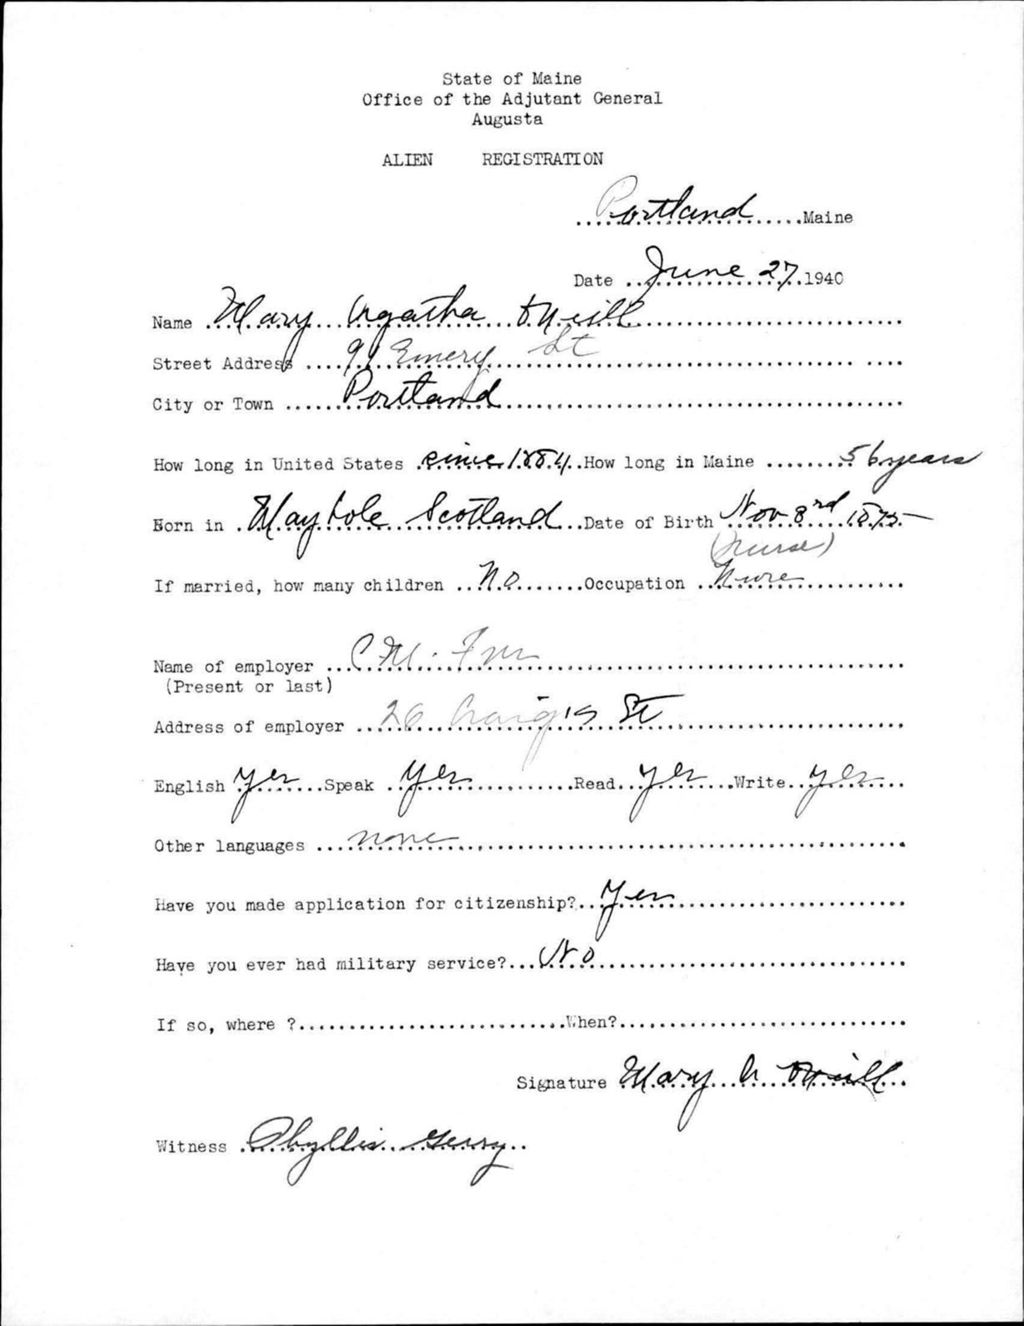 State of Maine
Office of the Adjutant General
Augusta
ALIEN REGISTRATION
Portland Maine
Date June 27, 1940
Name Mary Agatha O'Neill
Street Address 91 Emery St
City or Town Portland
How long in United States since 1884 How long in Maine 56 years
Born in Maybole Scotland Date of Birth Nov 8rd 1875
(nurse)
If married, how many children No Occupation
Name of employer C M.
(Present or last)
Address of employer 26 St
English Yes Speak Yes Read Yes Write Yes
Other languages none
Have you made application for citizenship? Yes
Have you ever had military service? No
If so, where ? When?
Signature Mary A O'Neill
Witness Phyllis Gerry